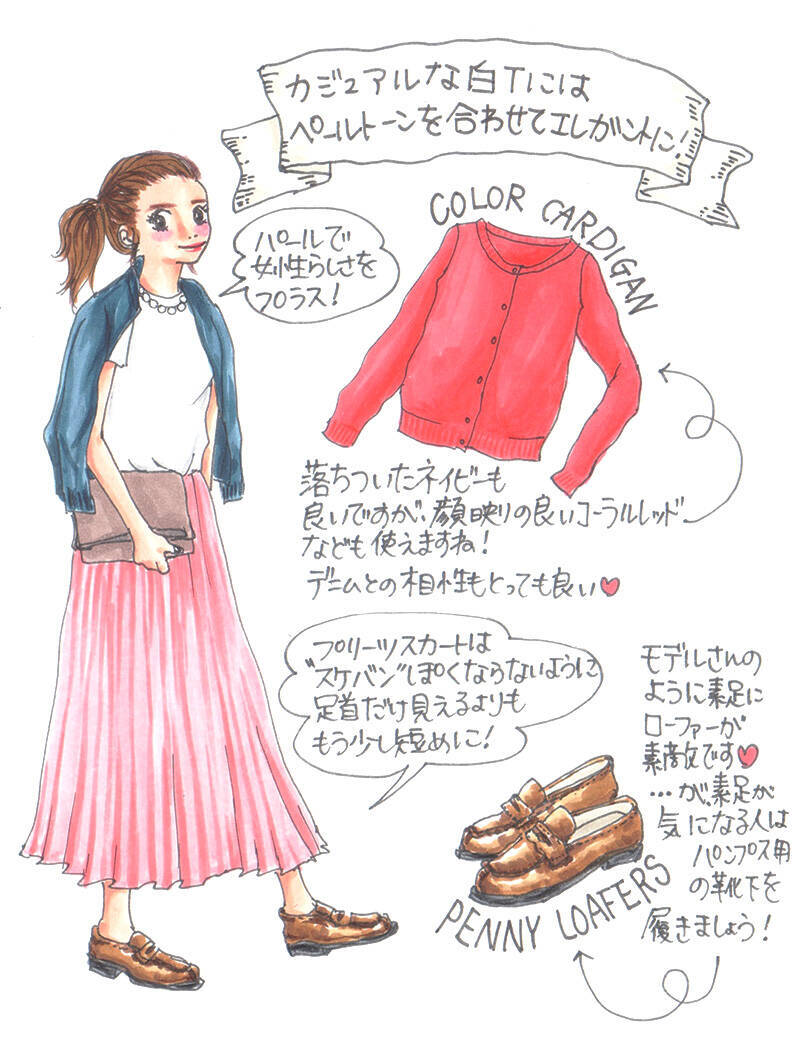 カジュアルな白Tには
ペールトーンを合わせてエレガントに!
COLOR CARDIGAN
パールで
女性らしさを
プラス!
落ちついたネイビーも
良いですが、顔映りの良いコーラルレッド
なども使えますね!
デニムとの相性もとっても良い♥
プリーツスカートは
"スケバン"ぽくならないように
足首だけ見えるよりも
もう少し短めに!
モデルさんの
ように素足に
ローファーが
素敵です♥
…が、素足が
気になる人は
パンプス用
の靴下を
履きましょう!
PENNY LOAFERS